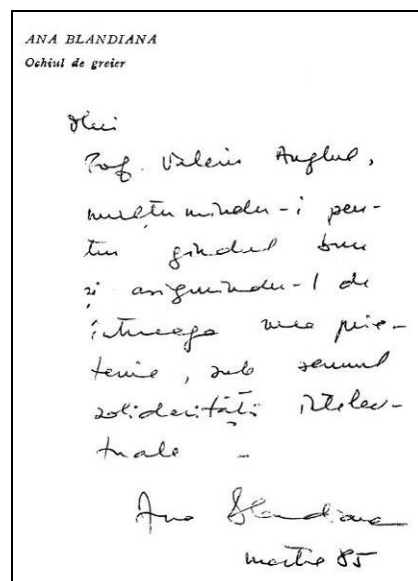 ANA BLANDIANA
Ochiul de greier
Dlui
Prof. Valeriu Anghel,
mulțumindu-i pen-
tru gîndul bun
și asigurîndu-l de
întreaga mea prie-
tenie, sub semnul
solidarității intelec-
tuale –
Ana Blandiana
martie 85